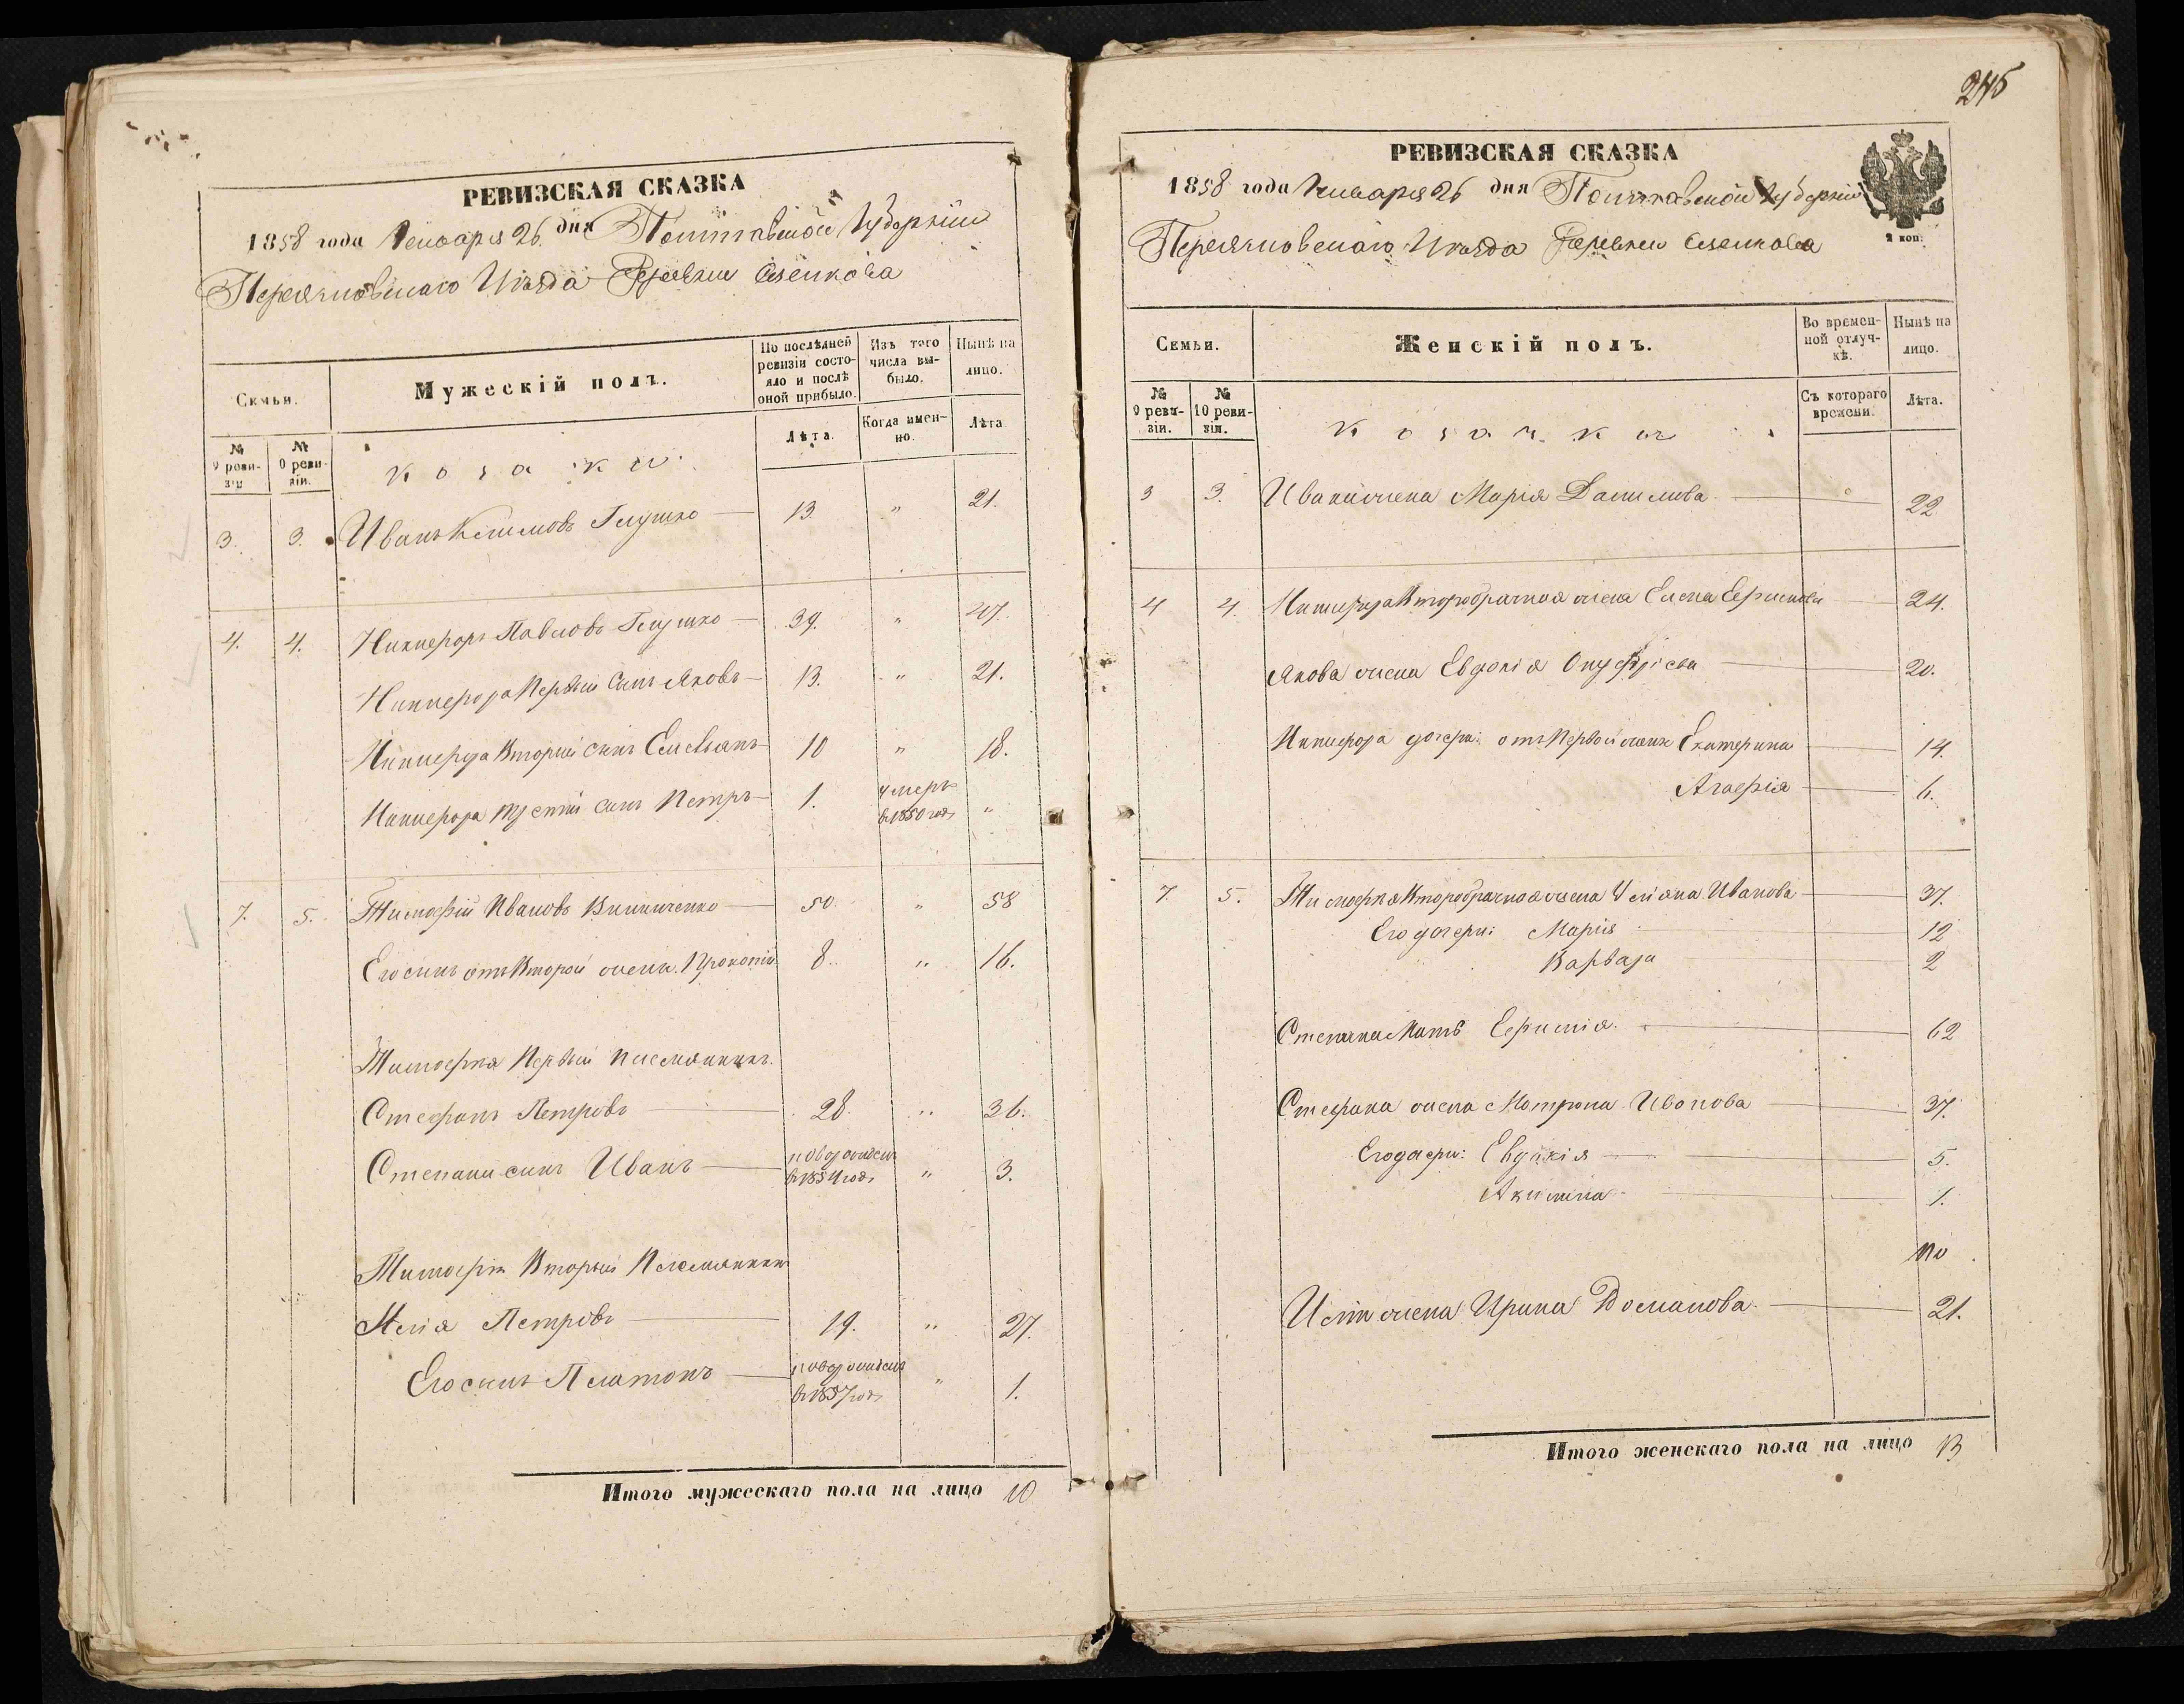 РЕВИЗСКАЯ СКАЗКА
1858 года Генваря 26 дня Полтавской Губерніи
Переяславскаго Уѣзда Деревни Сѣнкова
Семьи.
Мужескій полъ.
По послѣдней ревизіи состояло и послѣ оной прибыло.
Изъ того числа выбыло.
Нынѣ на лицо.
№ 9 ревизіи
№ 10 ревизіи.
козаки
Лѣта.
Когда именно.
Лѣта
3. 3. Иванъ Климовъ Глушко 13 " 21.
4. 4. Никифоръ Павловъ Глушко 39. " 47.
Никифора Первый сынъ Яковъ 13. " 21.
Никифора Вторый сынъ Емельянъ 10 " 18.
Никифора третій сынъ Петръ 1. умеръ в 1850 годѣ "
7. 5. Тимофій Ивановъ Винниченко 50. " 58
Его сынъ отъ Второй жены Прокопій 8. " 16.
Тимофея Первый племянникъ
Стефанъ Петровъ 28 " 36.
Степана сынъ Иванъ новорожденъ в 1854 годѣ " 3.
Тимофея Вторый Племянникъ
Илія Петровъ 19. " 27.
Его сынъ Платонъ новорожденъ в 1857 годѣ " 1.
Итого мужескаго пола на лицо 10
245
РЕВИЗСКАЯ СКАЗКА
1858 года Генваря 26 дня Полтавской Губерніи
Переяславскаго Уѣзда Деревни Сѣнкова
2 коп.
Семьи.
Женскій полъ.
Во временной отлучкѣ.
Нынѣ на лицо.
№ 9 ревизіи.
№ 10 ревизіи.
козачки
Съ котораго времени.
Лѣта.
3 3. Ивана жена Марія Данилова 22
4 4. Никифора Второбрачная жена Елена Ефимова 24.
Якова жена Евдокія Онуфріева 20.
Никифора дочери: отъ Первой жены Екатерина 14.
Агафія 6.
7. 5. Тимофея Второбрачная жена Уліяна Иванова 37.
Его дочери: Марія 12
Варвара 2
Степана Мать Ефимія 62
Стефана жена Матрона Иванова 37.
Его дочери: Евдокія 5.
Акилина 1.
Иліи жена Ирина Романова 21.
Итого женскаго пола на лицо 13